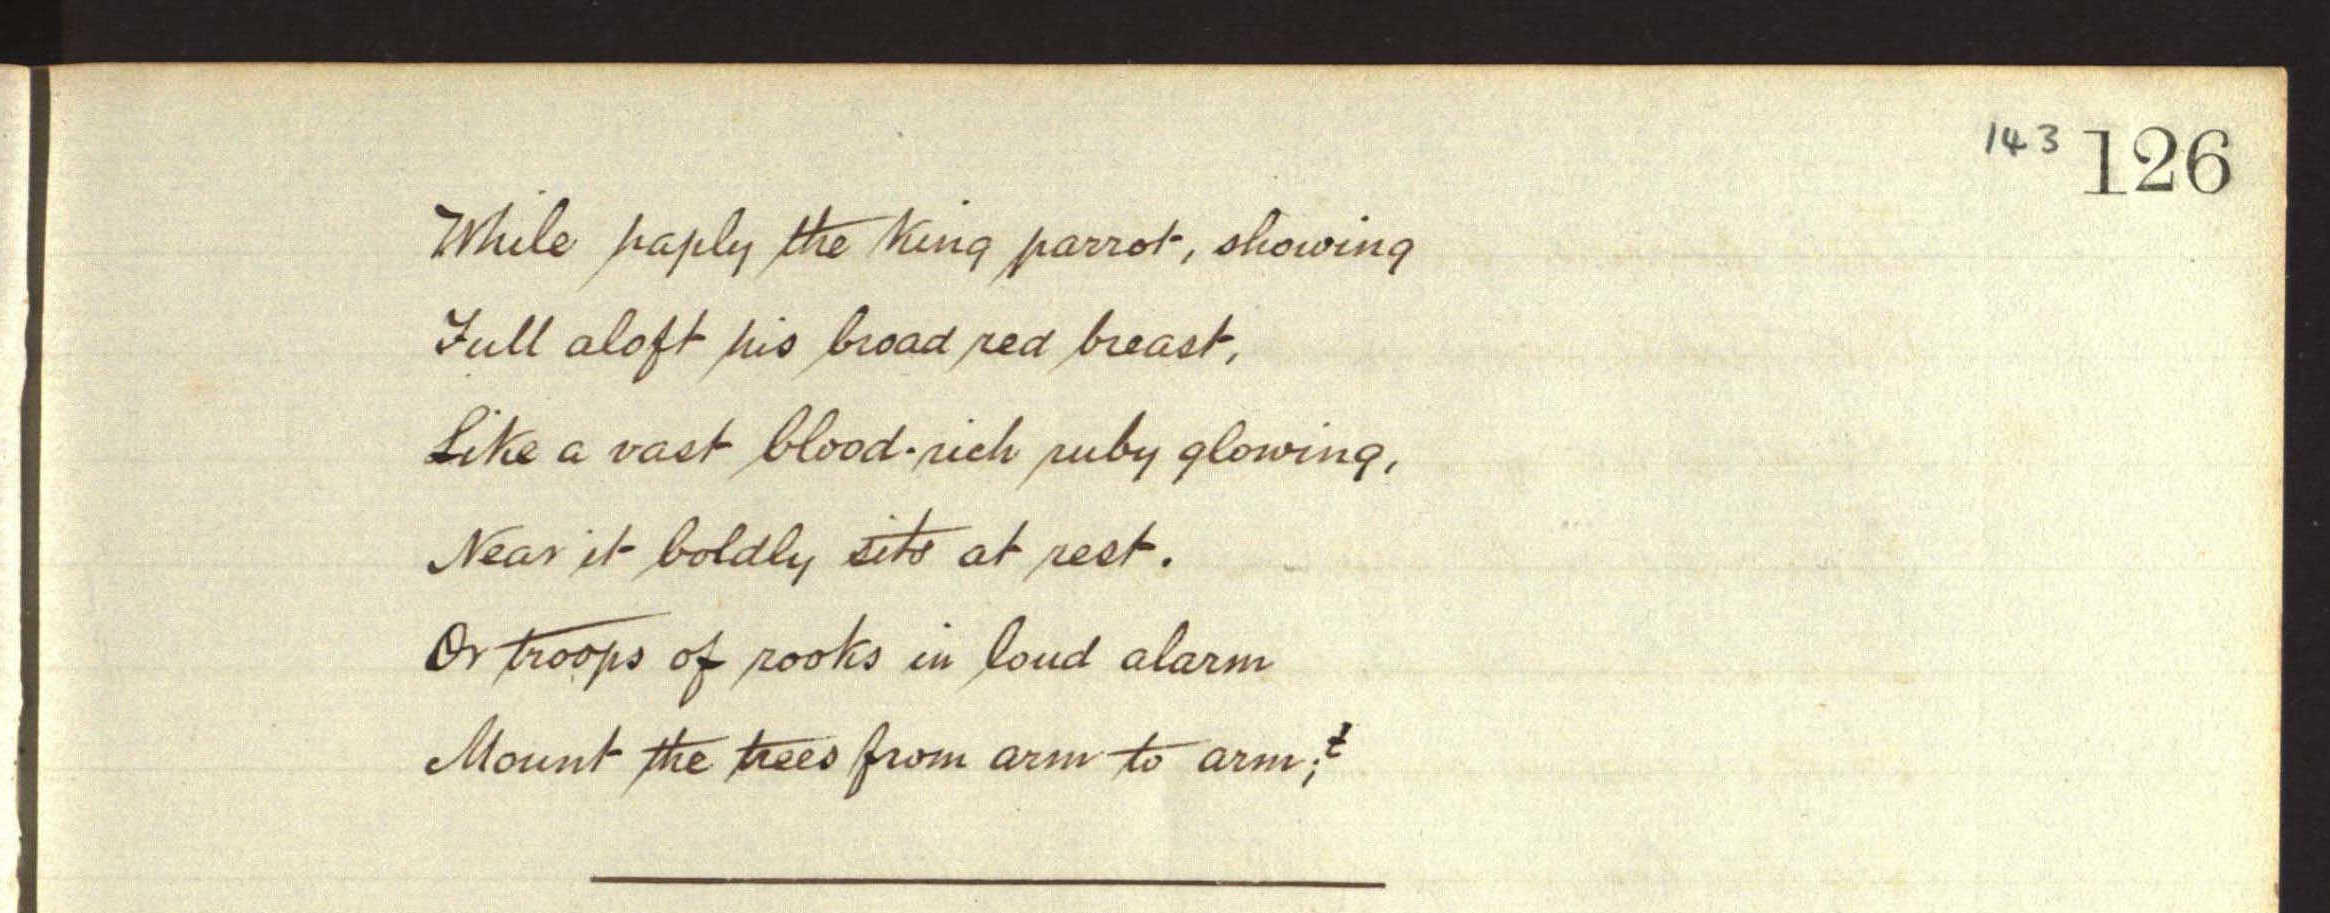 143 126
While haply the King parrot, showing
Full aloft his broad red breast,
Like a vast blood-rich ruby glowing,
Near it boldly sits at rest.
Or troops of rooks in loud alarm
Mount the trees from arm to arm;